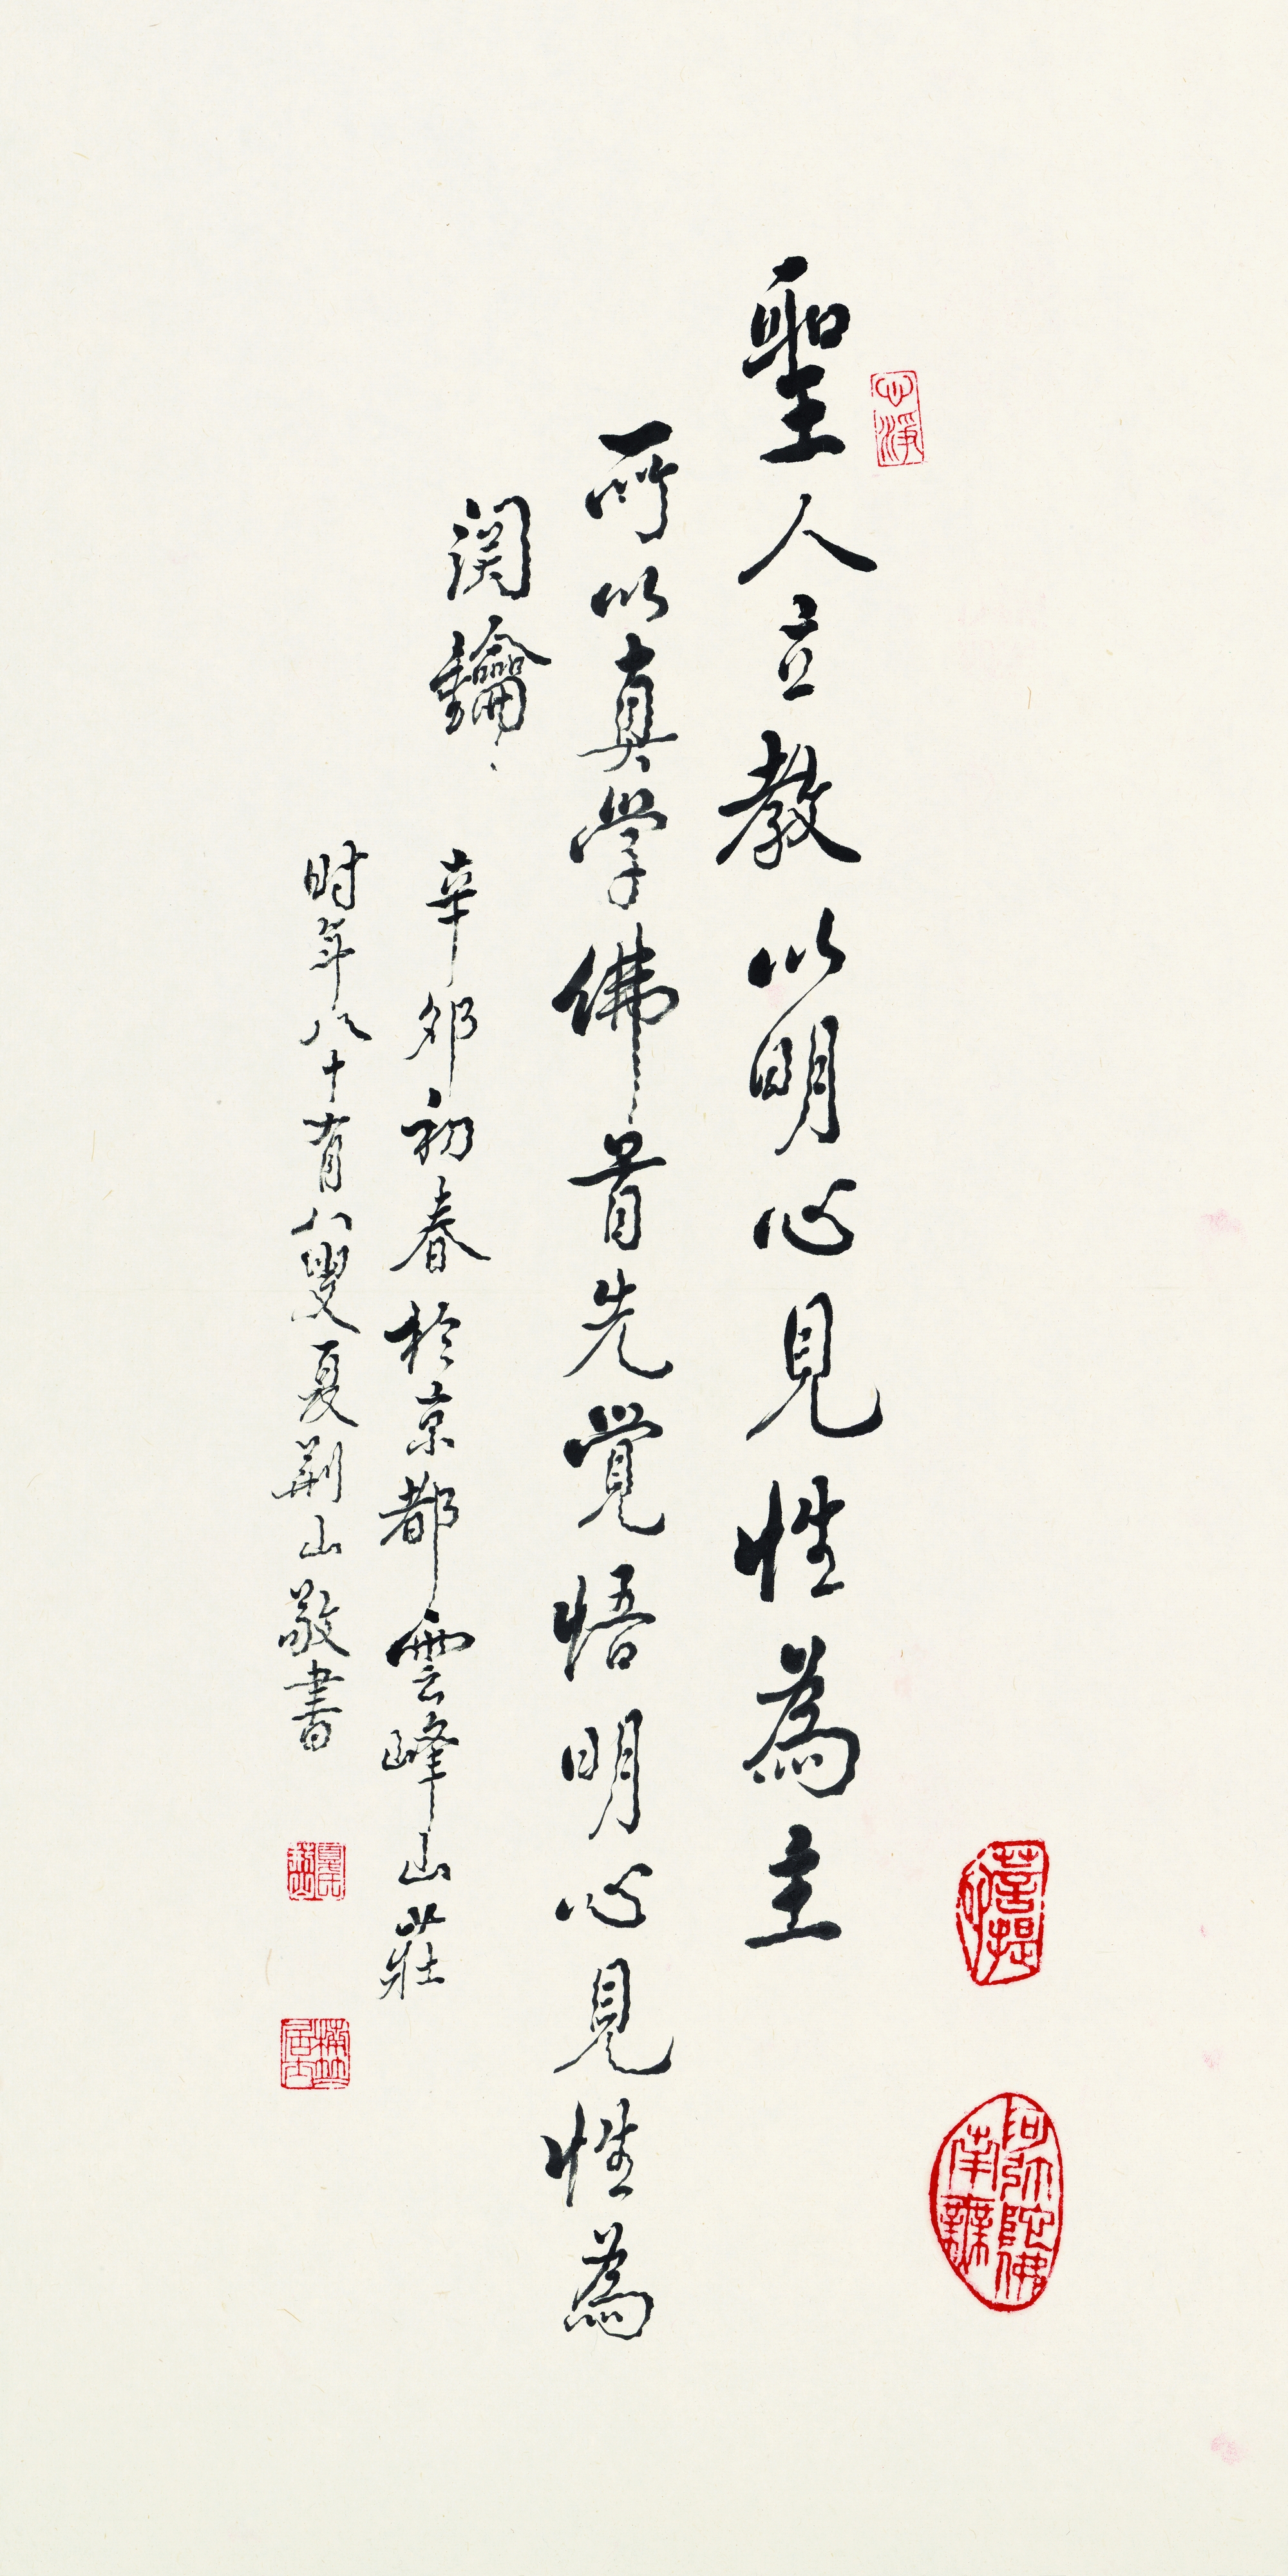 聖人立教以明心見性為主
所以真學佛首先覺悟明心見性為
関鑰
辛卯初春於京都雲峰山莊
时年八十有八叟夏荆山敬書
心淨
菩提
南無阿弥陀佛